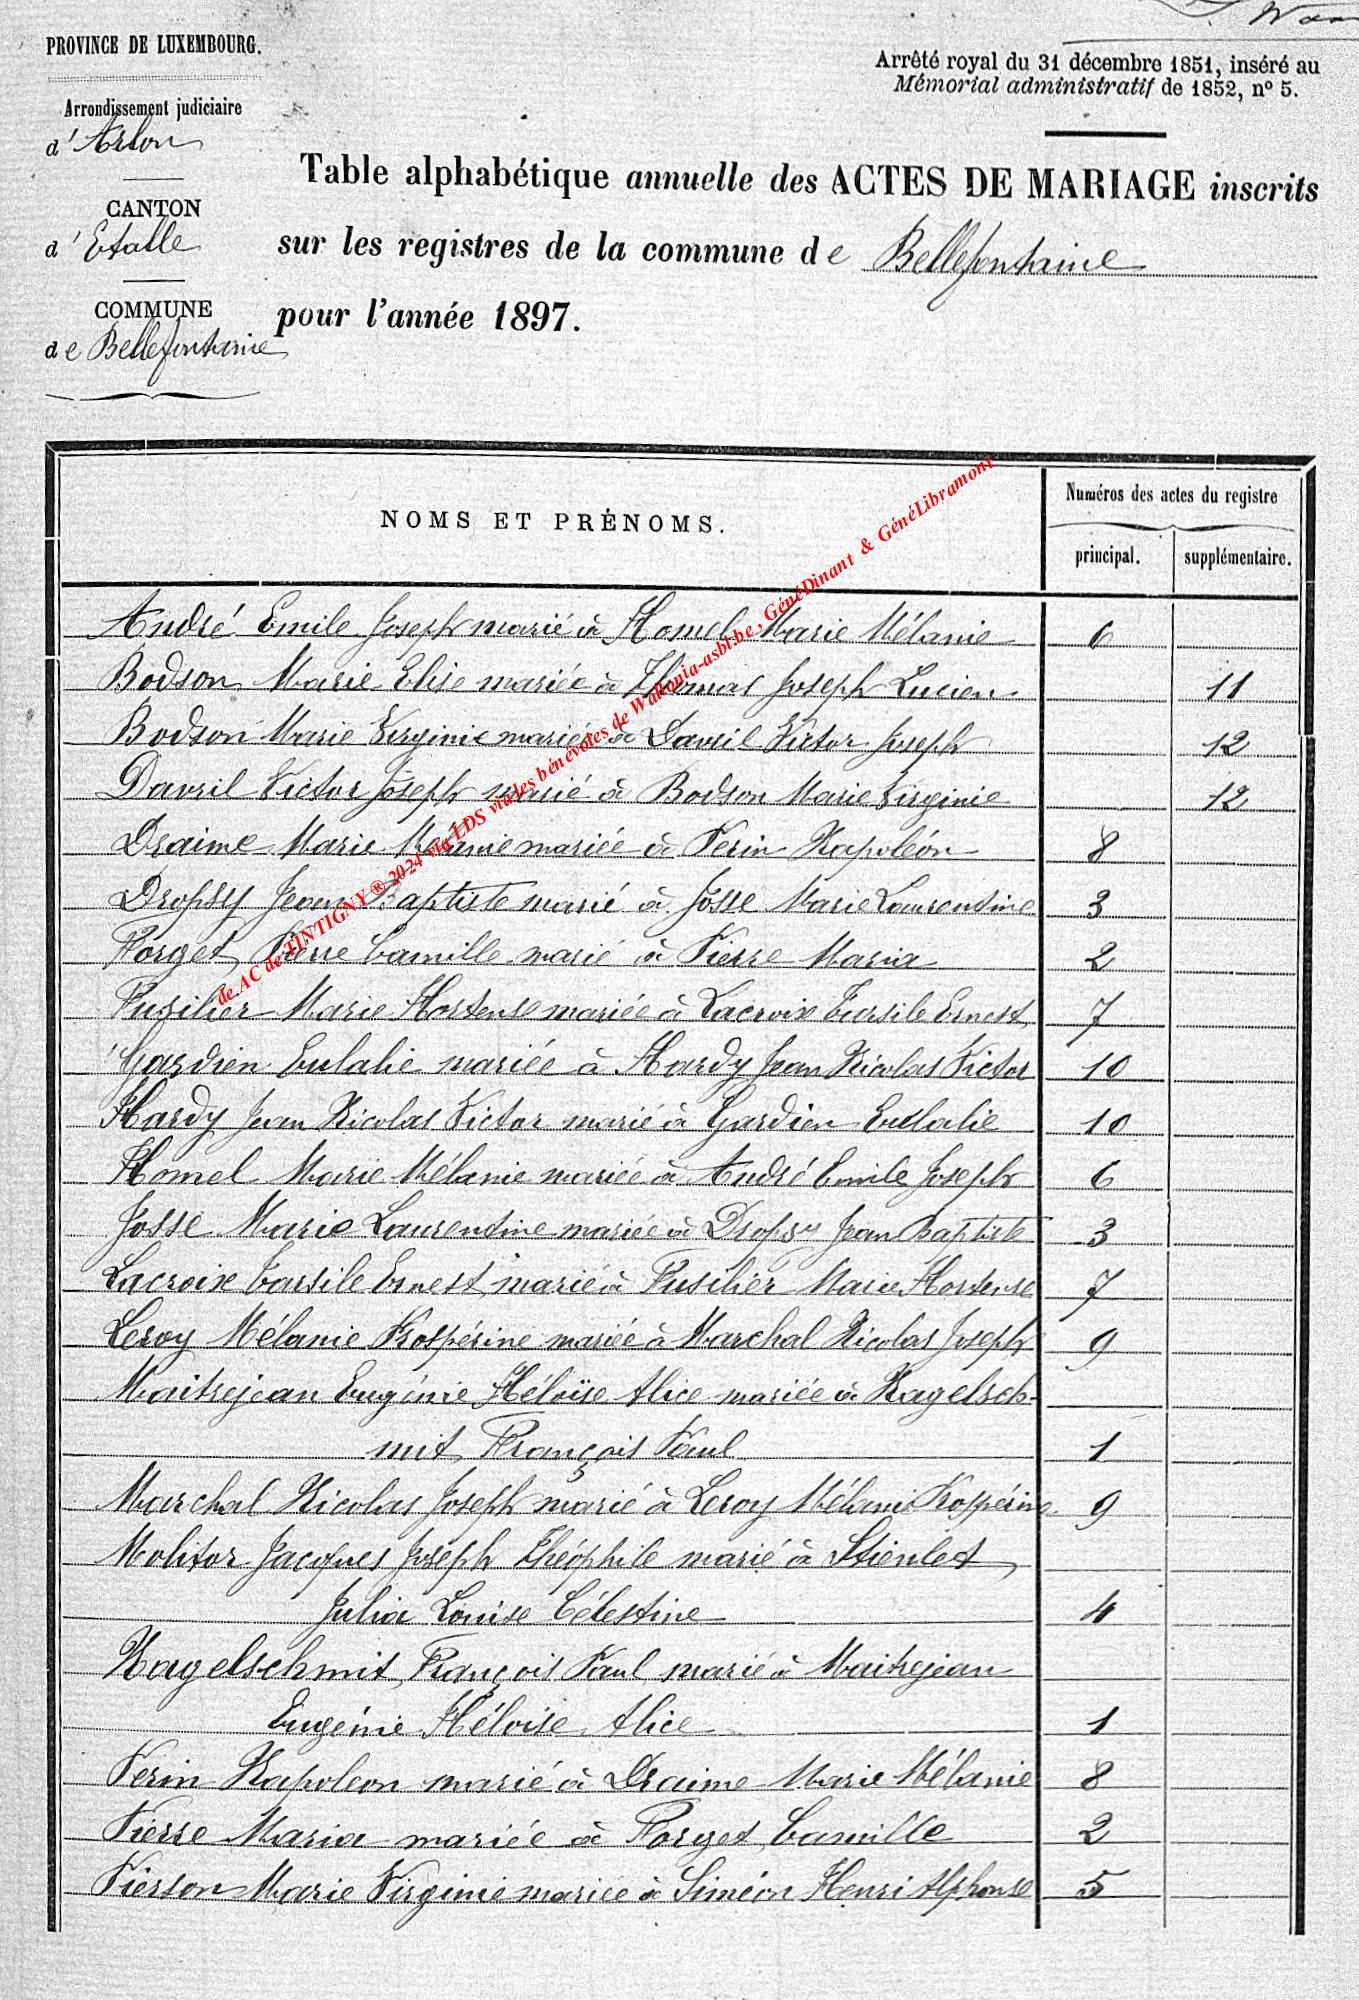 PROVINCE DE LUXEMBOURG.
Arrondissement judiciaire
d'Arlon
CANTON
d'Etalle
COMMUNE
de Bellefontaine
Arrêté royal du 31 décembre 1851, inséré au
Mémorial administratif de 1852, nº 5.
Table alphabétique annuelle des ACTES DE MARIAGE inscrits
sur les registres de la commune de Bellefontaine
pour l'année 1897.
NOMS ET PRÉNOMS.
Numéros des actes du registre
principal. supplémentaire.
André Emile Joseph marié à Homel Marie Mélanie 6
Bodson Marie Elise mariée à Thomas Joseph Lucien 11
Bodson Marie Virginie mariée à Davril Victor Joseph 12
Davril Victor Joseph marié à Bodson Marie Virginie 12
Draime Marie Mélanie mariée à Perin Napoléon 8
Dropsy Jean Baptiste marié à Josse Marie Laurentine 3
Forget Pierre Camille marié à Pierre Maria 2
Fusilier Marie Hortense mariée à Lacroix Tarsile Ernest 7
Gardien Eulalie mariée à Hardy Jean Nicolas Victor 10
Hardy Jean Nicolas Victor marié à Gardien Eulalie 10
Homel Marie Mélanie mariée à André Emile Joseph 6
Josse Marie Laurentine mariée à Dropsy Jean Baptiste 3
Lacroix Tarsile Ernest marié à Fusilier Marie Hortense 7
Leroy Mélanie Prospérine mariée à Marchal Nicolas Joseph 9
Maitrejean Eugénie Héloïse Alice mariée à Nagelsch-
mit François Paul 1
Marchal Nicolas Joseph marié à Leroy Mélanie Prospérine 9
Molitor Jacques Joseph Théophile marié à Stienlet
Julia Louise Célestine 4
Nagelschmit François Paul marié à Maitrejean
Eugénie Héloise Alice 1
Perin Napoleon marié à Draime Marie Mélanie 8
Pierre Maria mariée à Forget Camille 2
Pierson Marie Virginie mariée à Siméon Henri Alphonse 5
de AC de TINTIGNY ® 2024 via LDS via les bénévoles de Wallonia-asbl.be, GénéDinant & GénéLibramont